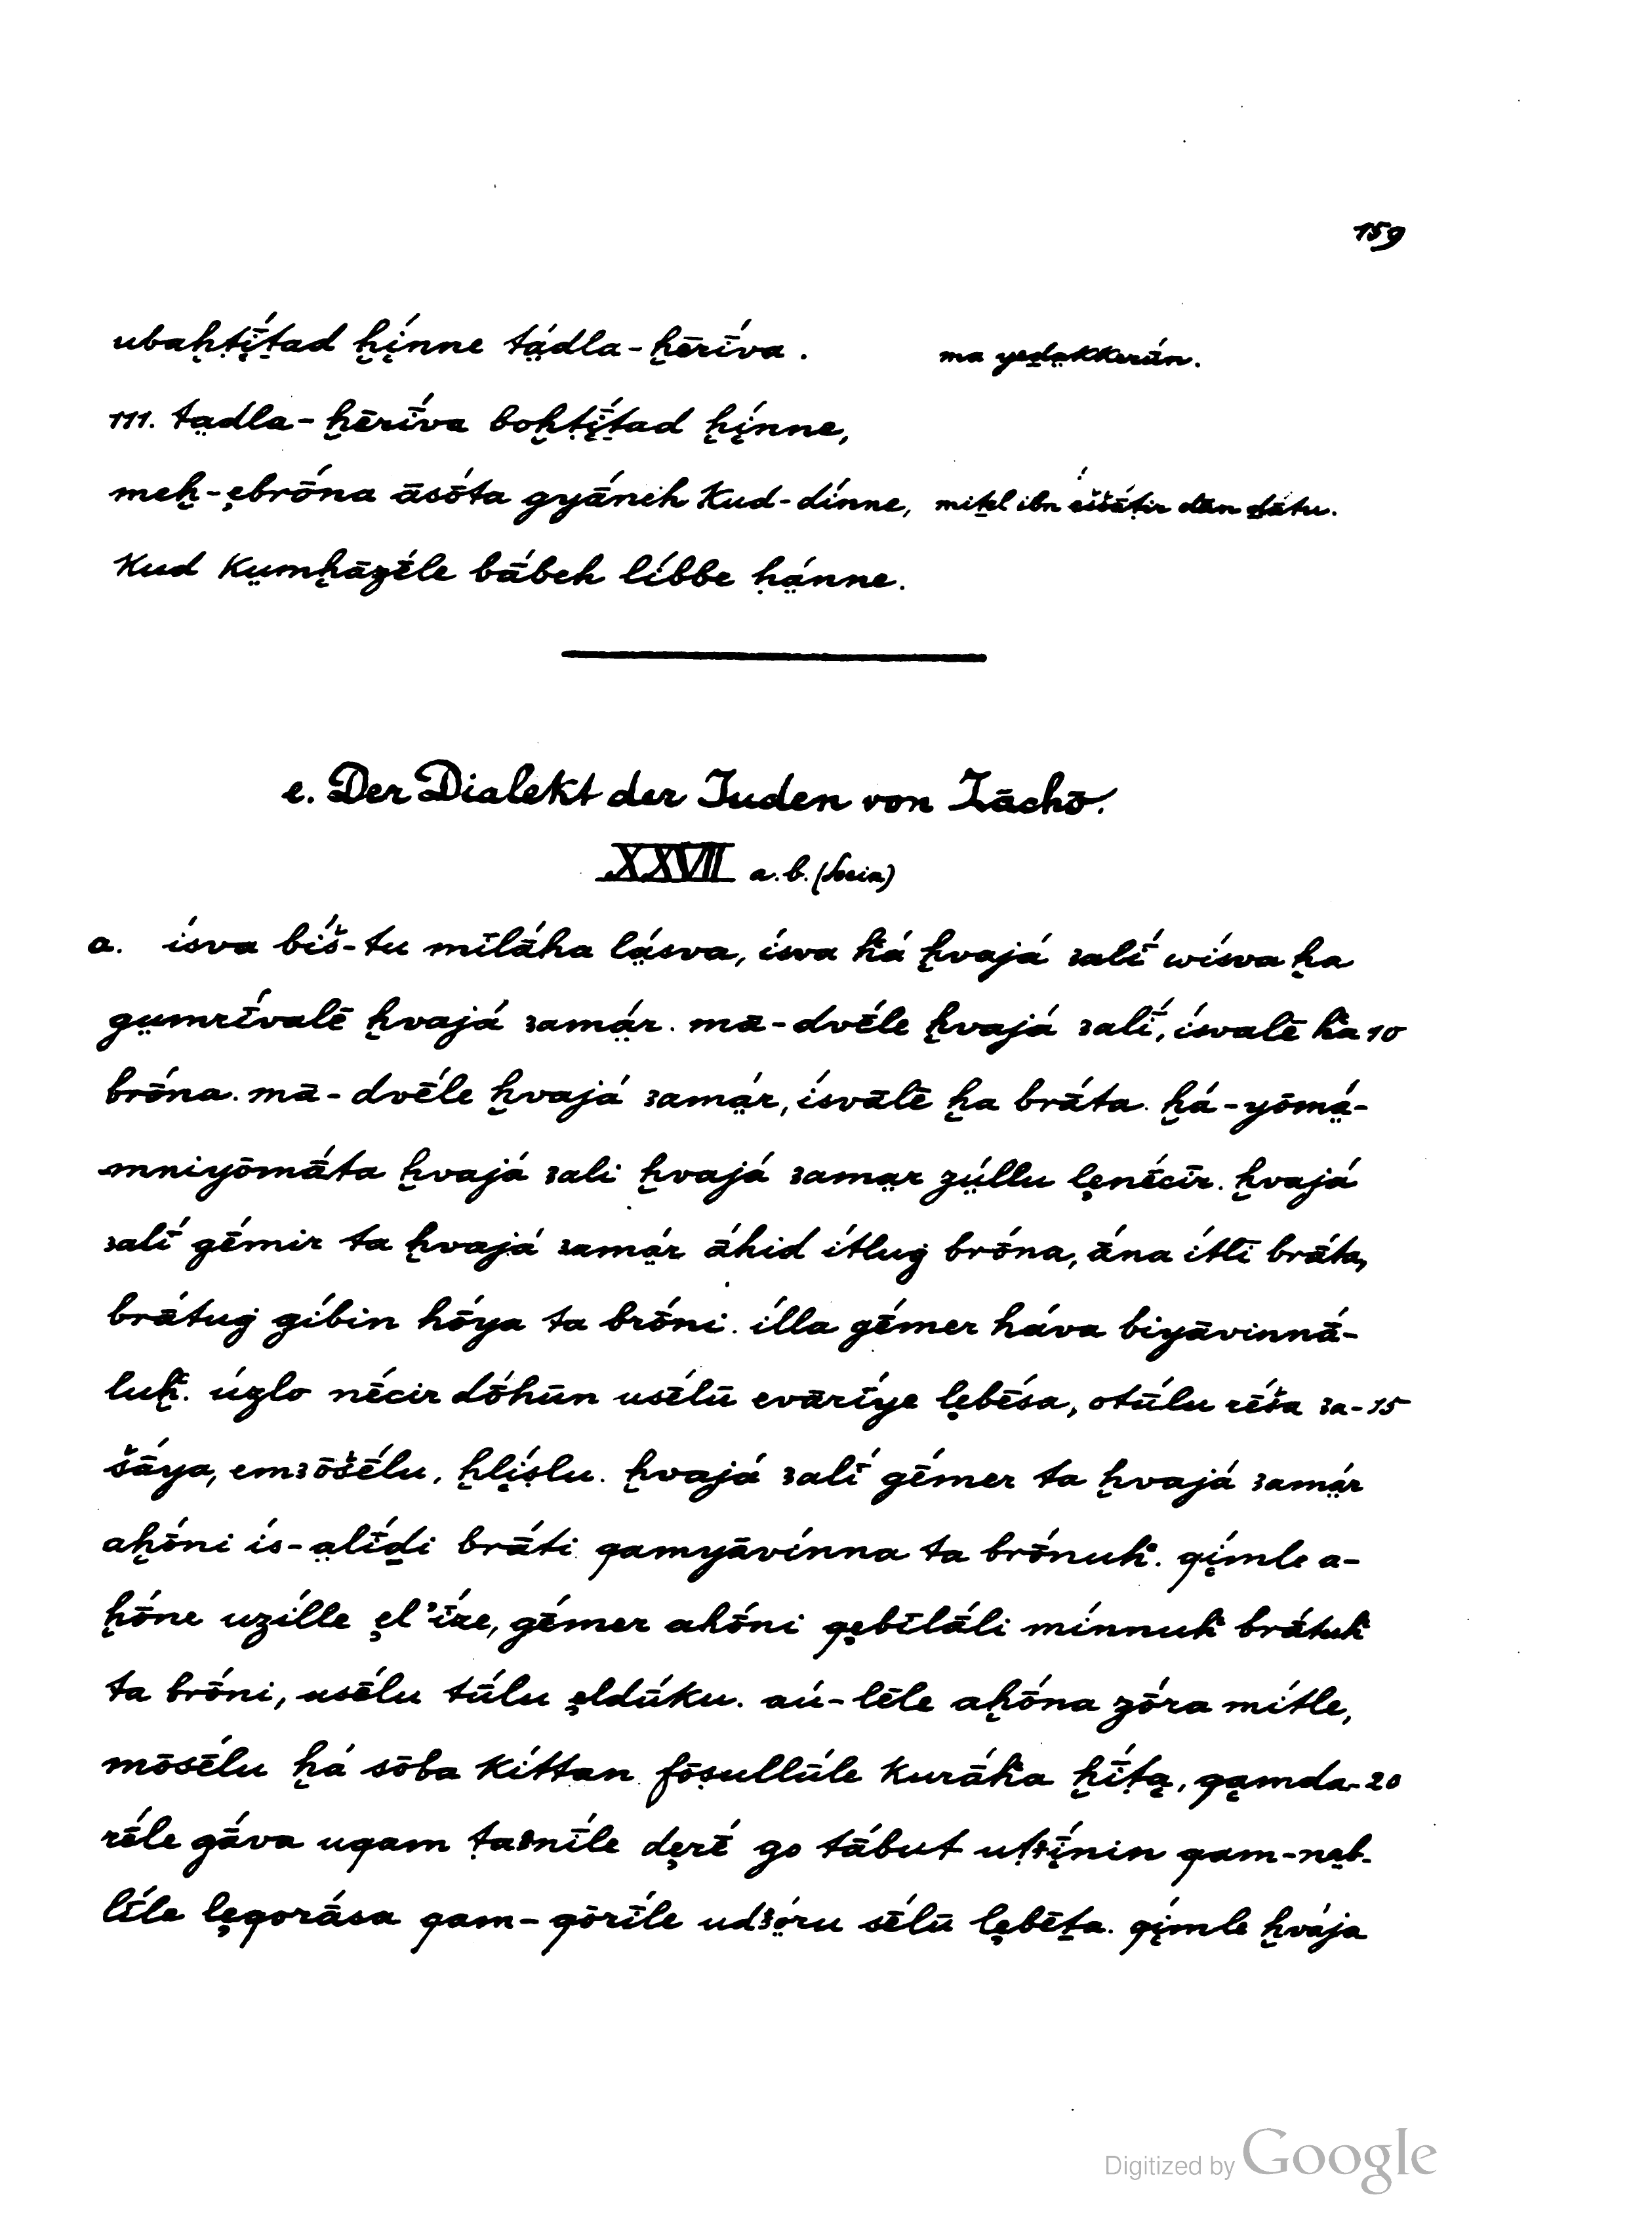 159
ubaḫṭị̄́ṯad ḫị́nne tạ̈́dla-ḫērī́va. ma yeḏạkkerūn.
111. tạdla-ḫērī́va boḫṭị̄́ṯad ḫị́nne,
meḫ-ẹbrṓna āsṓta gyā́neh kud-dínne, miṯl ibn éišā́ṭir dān dātu.
kud kụmḫāzḗle bā́beh líbbe ḥạ́nne.
e. Der Dialekt der Juden von Zāchō.
XXVII a. b. (Socin)
a. ísva bíš-tu mīlā́ha lạ́sva, ísva ḣá ḫvajá ꜣalī́ wísva ḫa
gụmrī́valē ḫvajá ꜣamạ́r. mā-dvḗle ḫvajá ꜣalī́, ísvalē ḣa 10
brṓna. mā-dvḗle ḫvajá ꜣamạ́r, ísvālē ḫa brā́ta. ḫá-yōmạ́-
mniyōmā́ta ḫvajá ꜣali ḫvajá ꜣamạr zụ́llu lẹnécīr. ḫvajá
ꜣalī́ gḗmir ta ḫvajá ꜣamạ́r ā́hid ítlug brṓna, ā́na ítlī brā́ta,
brā́tug gíbin hṓya ta brṓni. ílla gḗmer háva biyāvinnā́-
luḫ. úzlo nḗcir dṓhūn usḗlū evārī́ye lẹbḗsa, otū́lu rḗša ꜣa- 15
šā́ya, emꜣōšḗlu, ḫlị́ṣlu. ḫvajá ꜣalī́ gḗmer ta ḫvajá ꜣamạ́r
aḫṓni ís-ạlī́ḏi brā́ti qamyāvínna ta brṓnuḣ. qị́mle a-
ḫṓne uzílle ẹl'ī́re, gḗmer ahṓni qẹbīlā́li mínnuḣ brā́tuḣ
ta brṓni, usḗlu tū́lu ẹldū́ku. aú-lēle aḫṓna zṓra mítle,
mōsḗlu ḫá sōba kíttan fōṣullū́le kurā́ḣa ḫī́ṭạ, qạmda- 20
rḗle gā́va uqam ṭaꜣnī́le dẹrḗ go tā́but uṭꜣị́nin qam-nạb-
lī́le lẹqorā́sa qam-qōrī́le udꜣọ́ru sḗlū lẹbḗṯa. qị́mle ḫvája
Digitized by Google